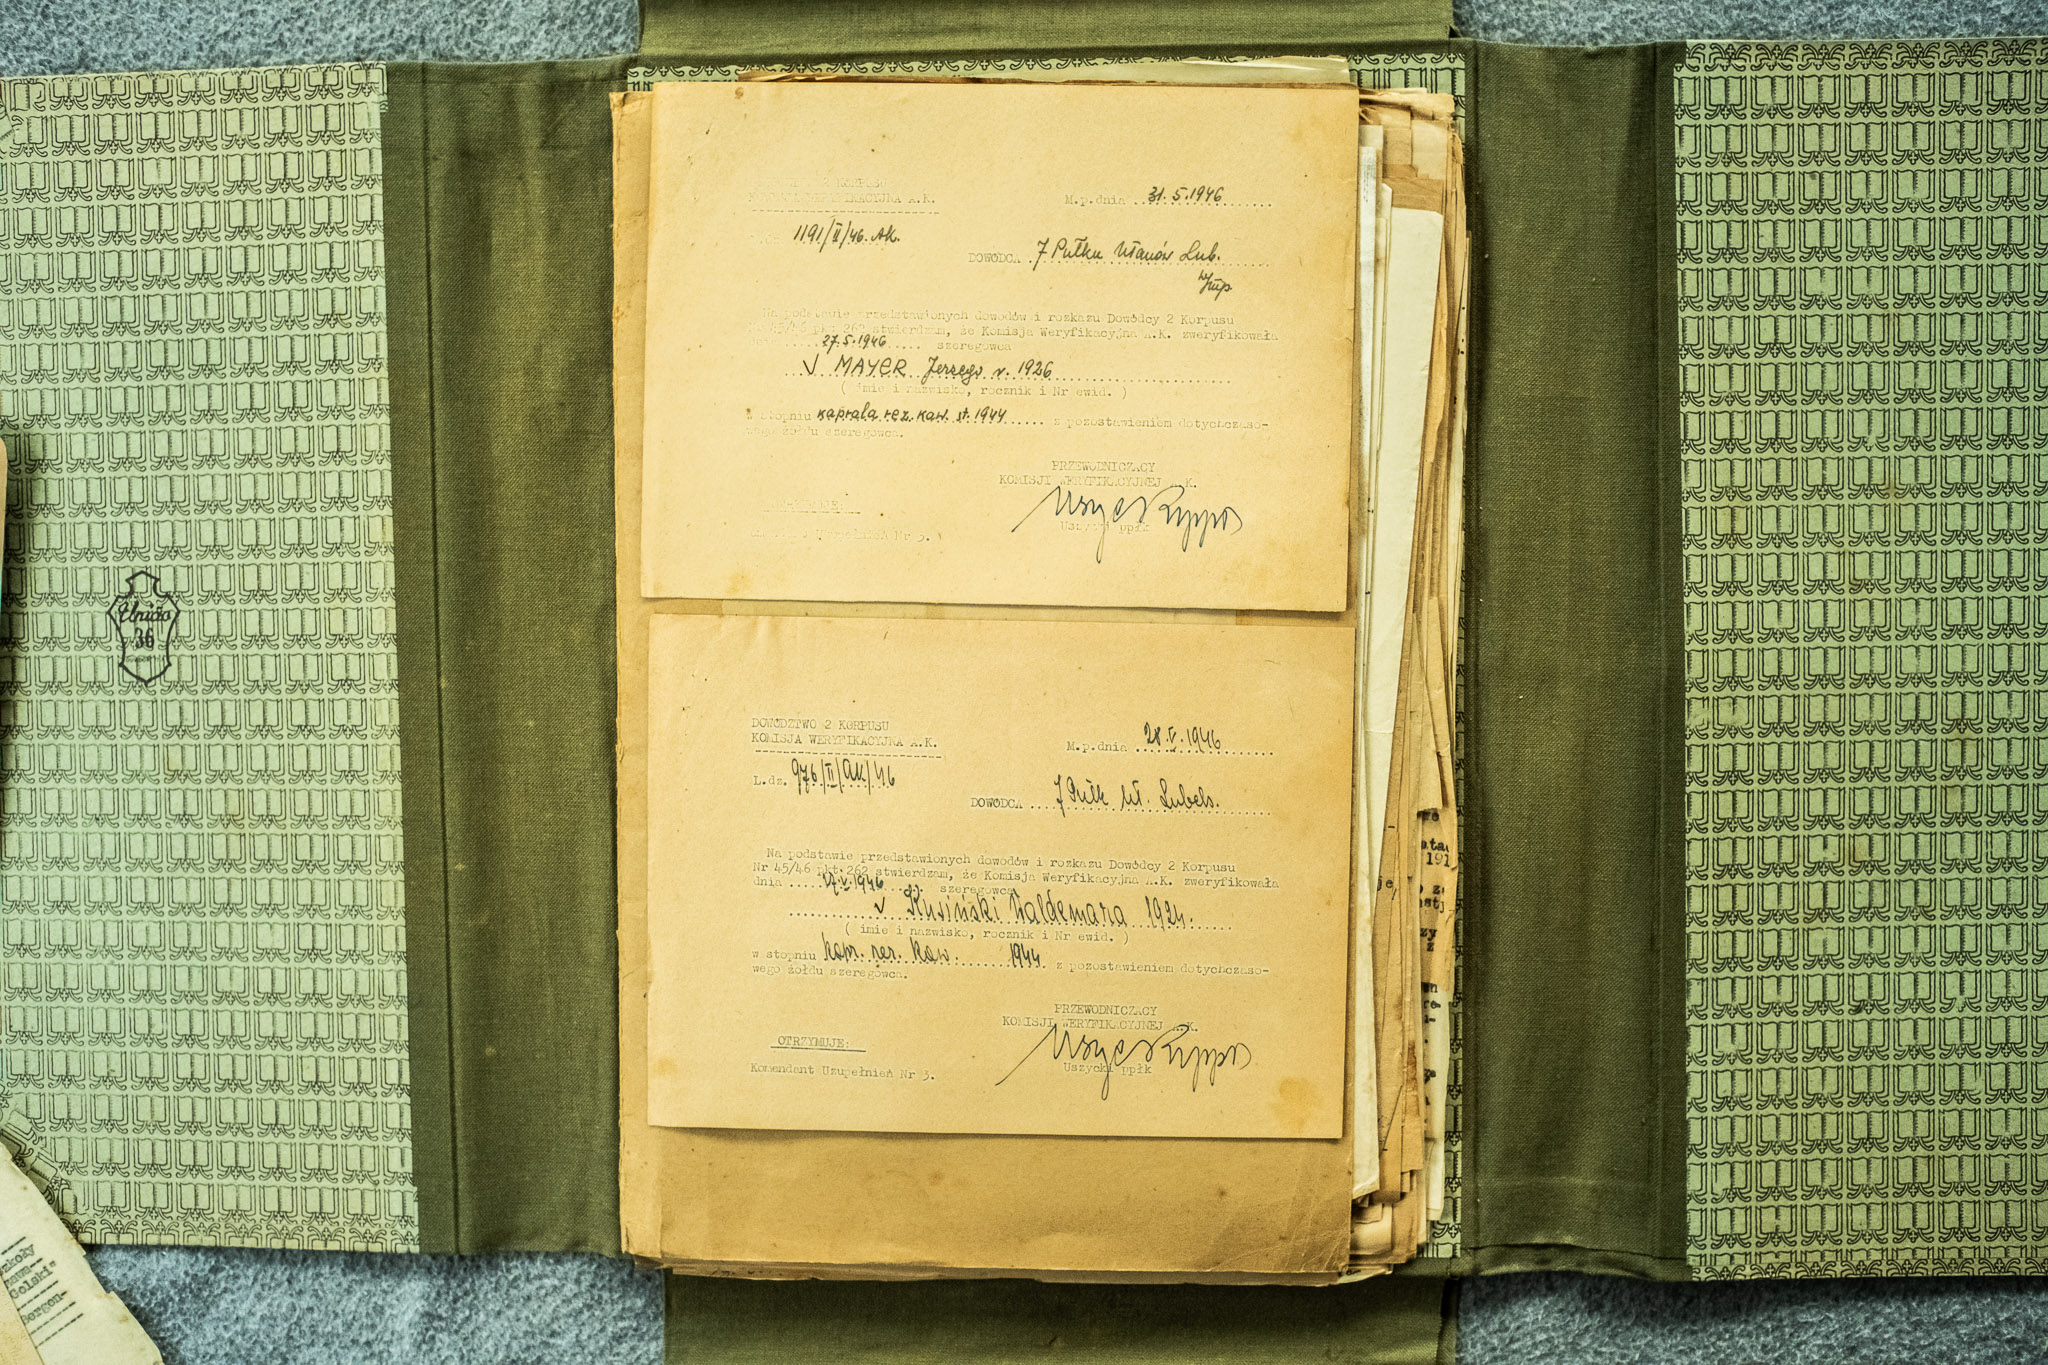 KORPUSU
A.K.
M.p.dnia 31.5.1946
1191/II/46.AK.
DOWÓDCA 7 Pułku Ułanów Lub.
Na podstawie przedstawionych dowodów i rozkazu Dowódcy 2 Korpusu
Nr 45/46 pkt. 262 stwierdzam, że Komisja Weryfikacyjna A.K. zweryfikowała
27.5.1946 szeregowca
V MAYER Jerzego r. 1926
( imie i nazwisko, rocznik i Nr ewid. )
w stopniu kaprala rez. kaw. st. 1944 z pozostawieniem dotychczaso-
wego żołdu szeregowca.
PRZEWODNICZĄCY
KOMISJI WERYFIKACYJNEJ A.K.
Uszycki ppłk
Nr 3.
DOWÓDZTWO 2 KORPUSU
KOMISJA WERYFIKACYJNA A.K.
M.p.dnia 28.V.1946
L.dz. 976/II/AK/46
DOWÓDCA 7 Pułk Uł. Lubels.
Na podstawie przedstawionych dowodów i rozkazu Dowódcy 2 Korpusu
Nr 45/46 pkt. 262 stwierdzam, że Komisja Weryfikacyjna A.K. zweryfikowała
dnia 17.V.1946 szeregowca
V Kusiński Waldemara 1924.
( imie i nazwisko, rocznik i Nr ewid. )
w stopniu kapr. rez. kaw. 1944 z pozostawieniem dotychczaso-
wego żołdu szeregowca.
PRZEWODNICZĄCY
KOMISJI WERYFIKACYJNEJ A.K.
Uszycki ppłk
OTRZYMUJE:
Komendant Uzupełnień Nr 3.
36
191